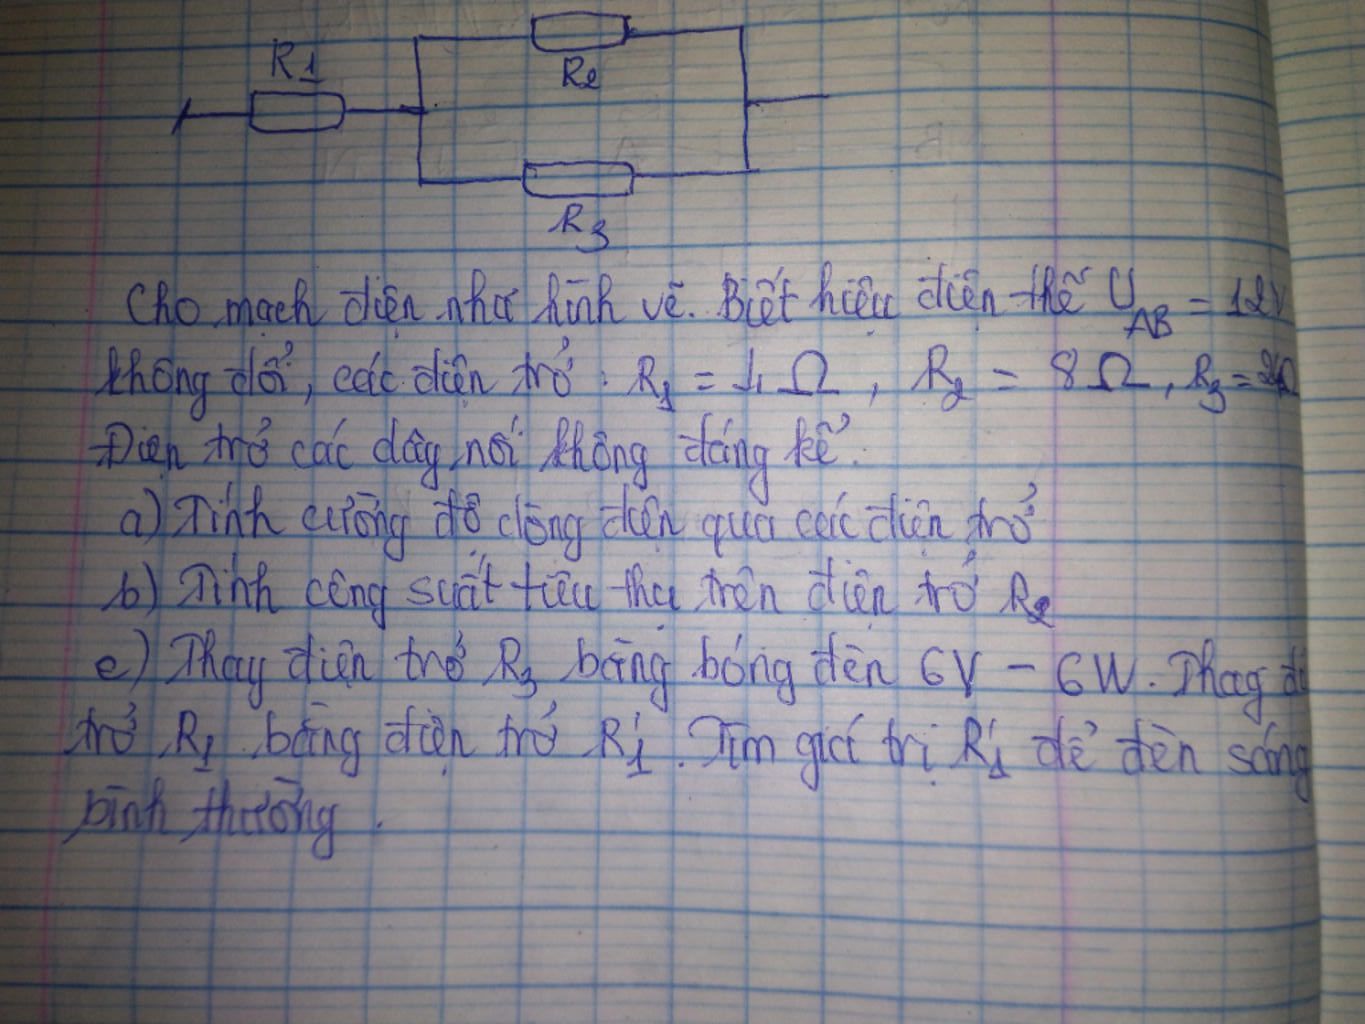 R1
R2
R3
Cho mạch điện như hình vẽ. Biết hiệu điện thế U AB = 12V
không đổi, các điện trở : R1 = Ω, R2 = 8Ω, R3 =
Điện trở các dây nối không đáng kể.
a) Tính cường độ dòng điện qua các điện trở
b) Tính công suất tiêu thụ trên điện trở R2
c) Thay điện trở R3 bằng bóng đèn 6V - 6W. Thay
trở R1 bằng điện trở R'1. Tìm giá trị R'1 để đèn sáng
bình thường.